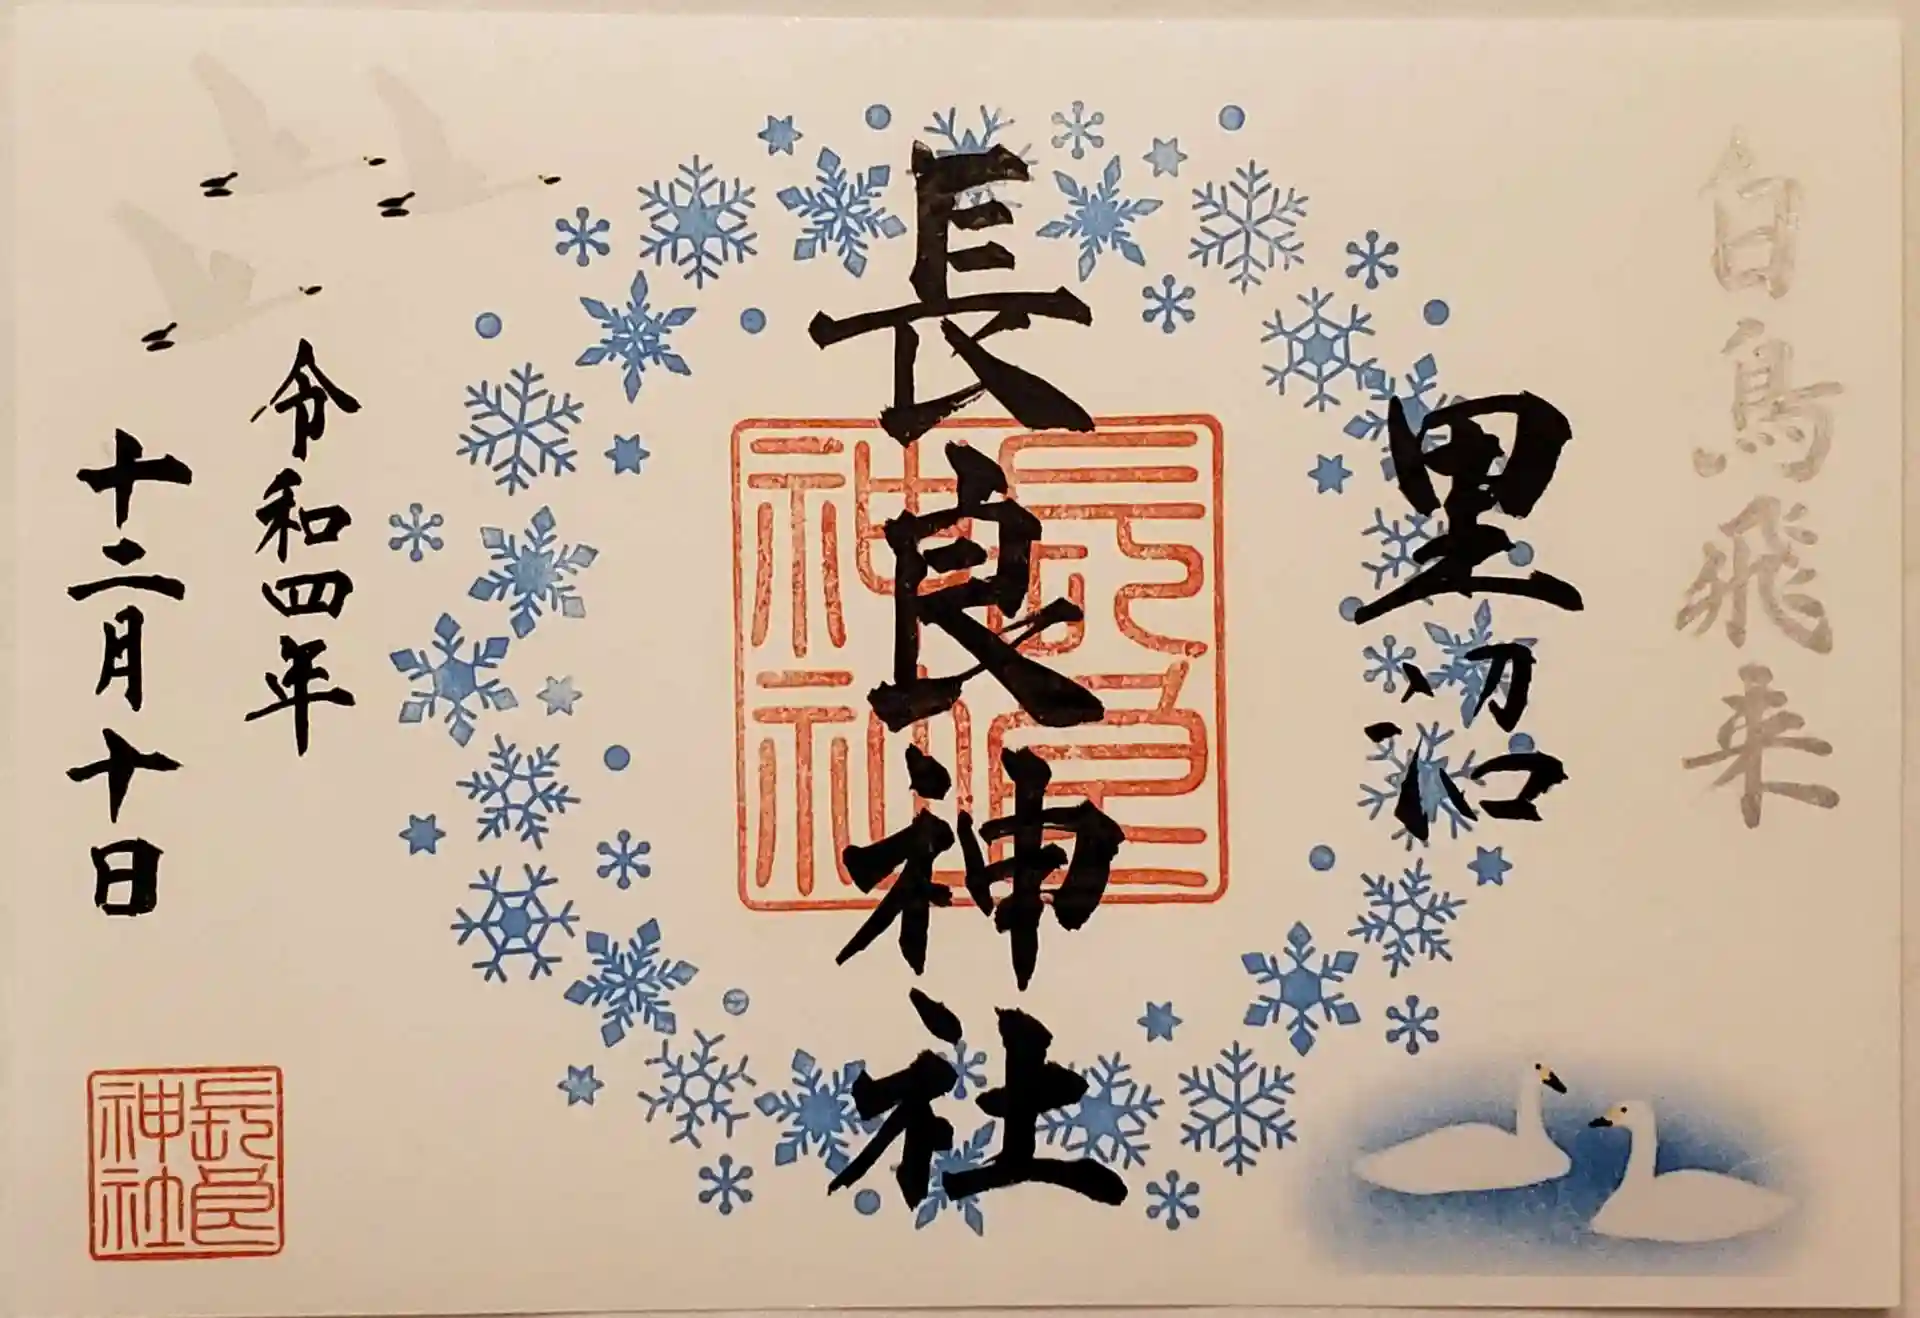 白鳥飛来
里沼
長良神社
長良
神社
令和四年
十二月十日
長良
神社